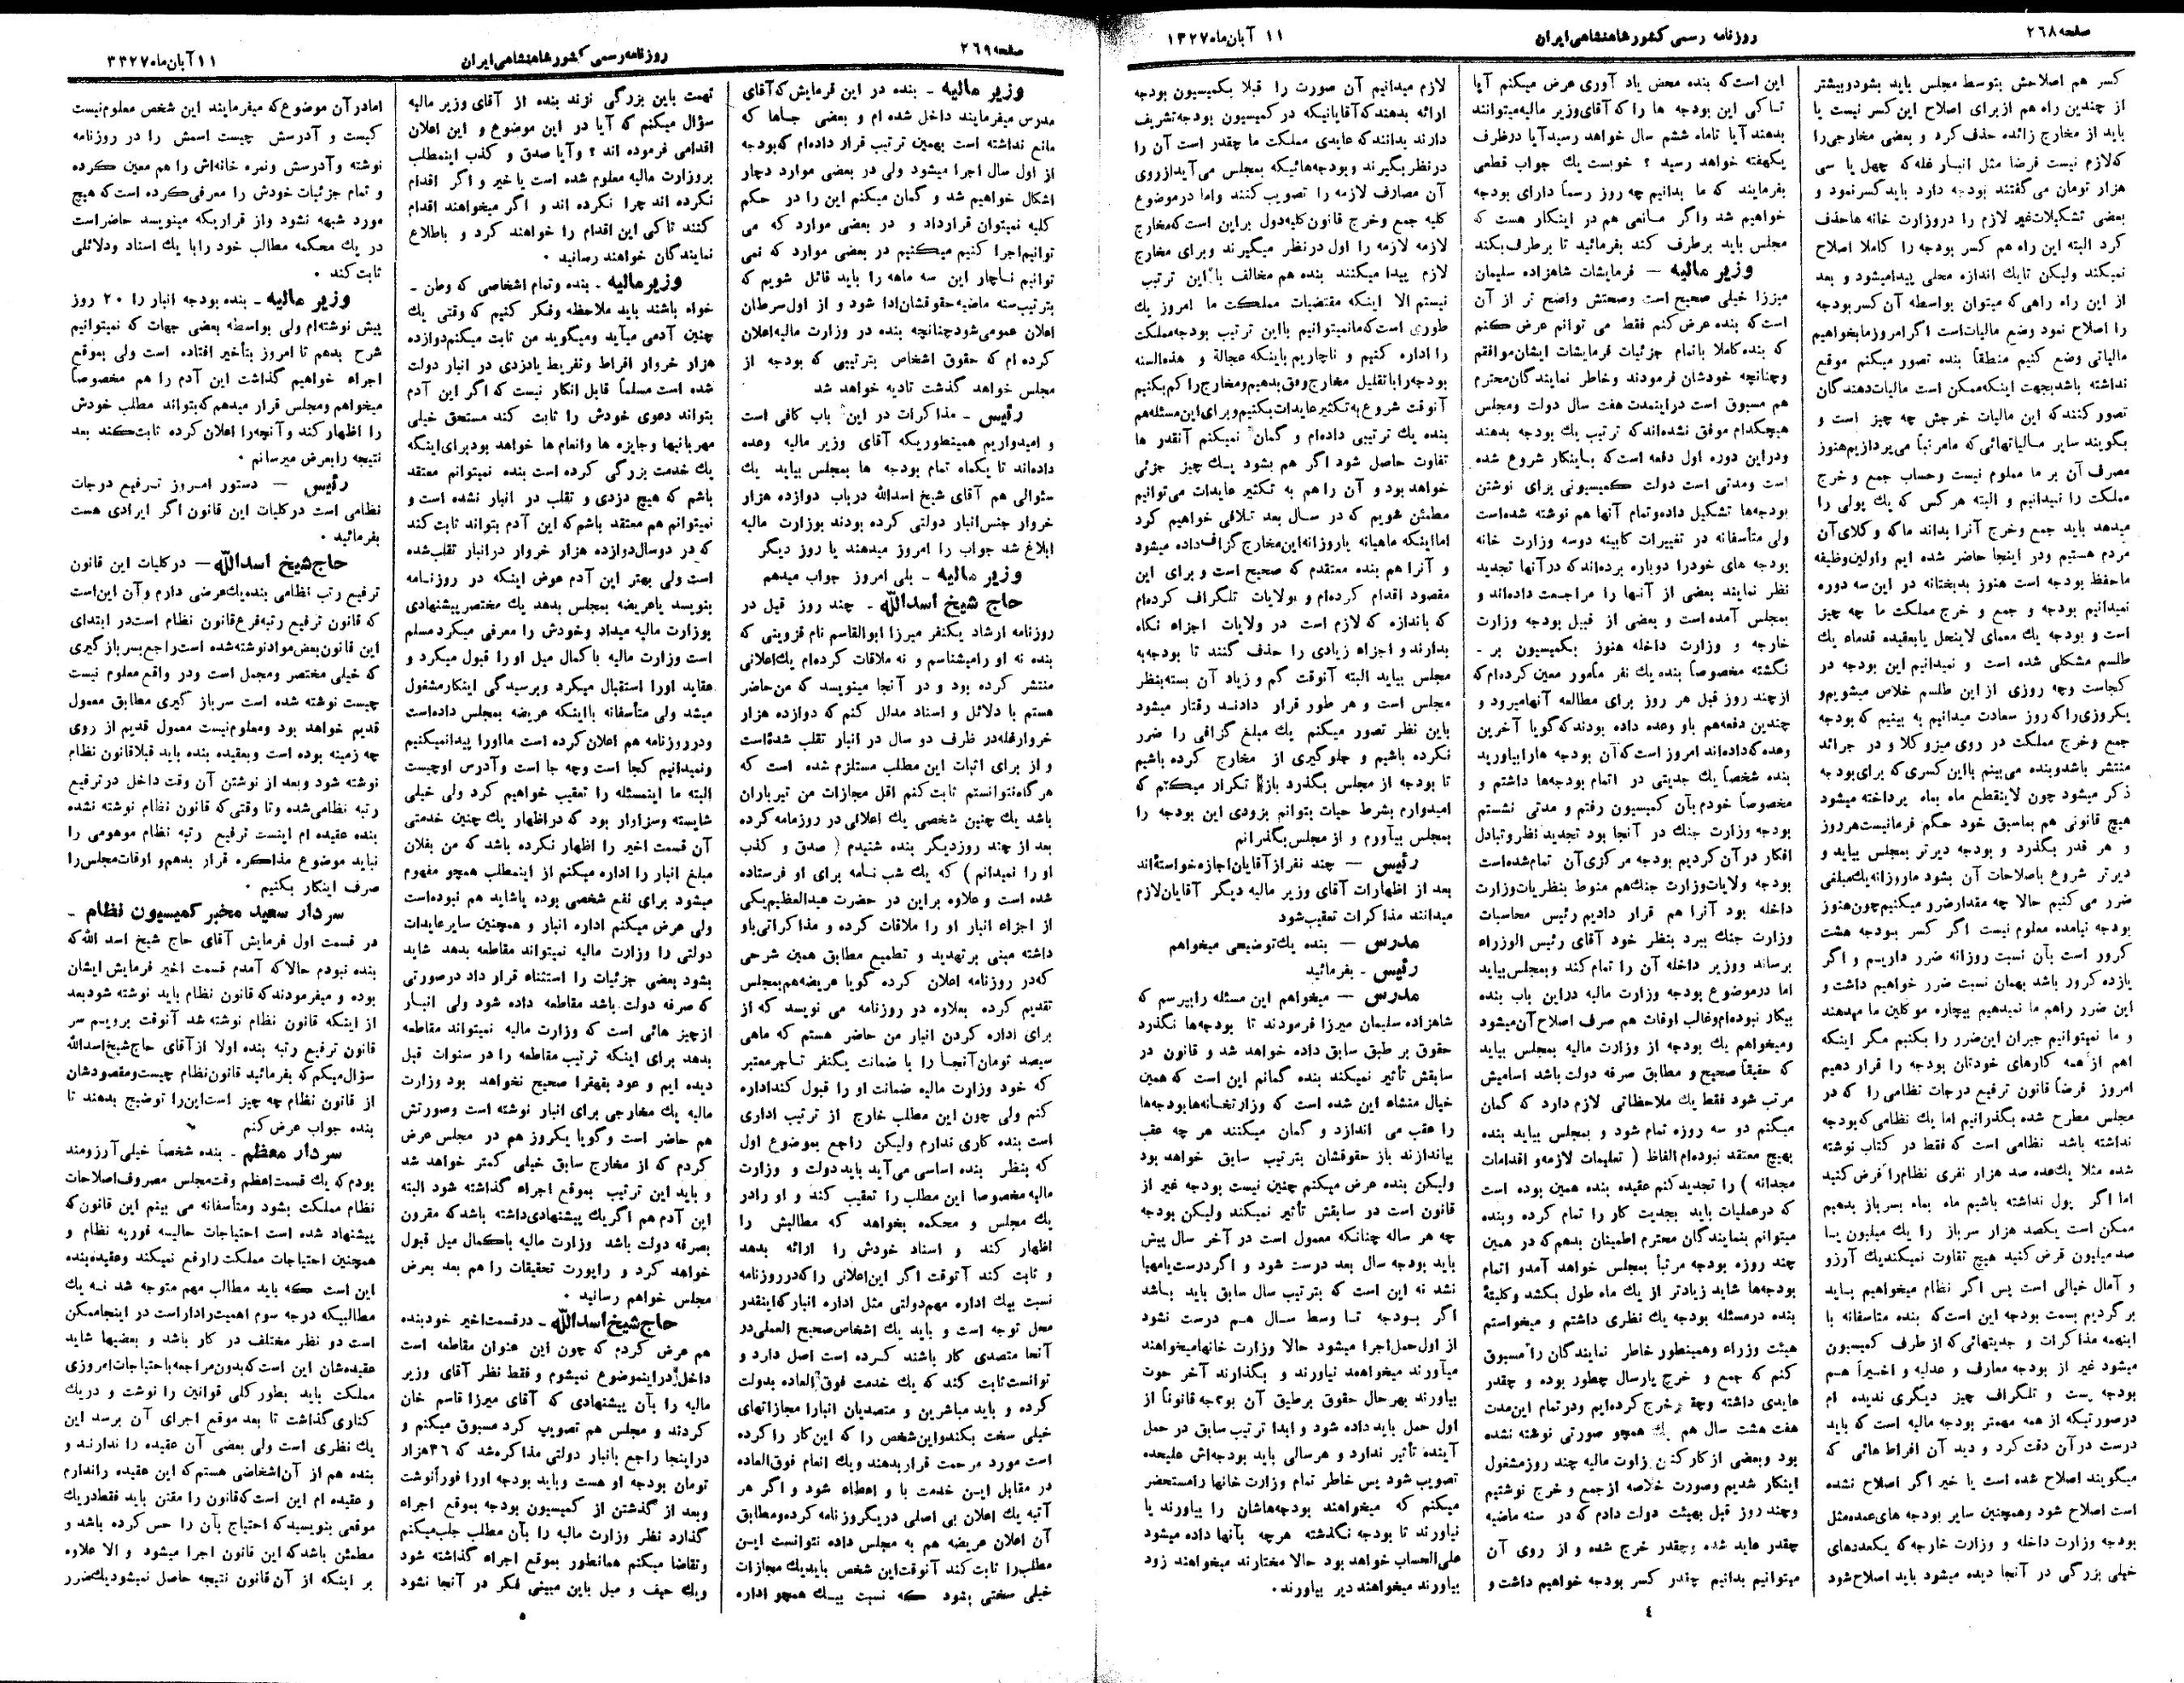 صفحه ۲۶۸
روزنامه رسمی کشور شاهنشاهی ایران
۱۱ آبان‌ماه ۱۳۲۷
کسر هم اصلاحش بتوسط مجلس باید بشود وبیشتر
از چندین راه هم از برای اصلاح این کسر نیست یا
باید از مخارج زائده حذف کرد و بعضی مخارجی را
که لازم نیست فرضا مثل انبار غله که چهل یا سی
هزار تومان می گفتند بودجه دارد باید کسر نمود و
بعضی تشکیلات غیر لازم را در وزارت خانه ها حذف
کرد البته این راه هم کسر بودجه را کاملا اصلاح
نمیکند ولیکن تا یك اندازه محلی پیدا میشود و بعد
از این راه راهی که میتوان بواسطه آن کسر بودجه
را اصلاح نمود وضع مالیات است اگر امروز ما بخواهیم
مالیاتی وضع کنیم منطقاً بنده تصور میکنم موقع
نداشته باشد بجهت اینکه ممکن است مالیات دهندگان
تصور کنند که این مالیات خرجش چه چیز است و
بگویند سایر مالیاتهائی که ما مرتباً می پردازیم هنوز
مصرف آن بر ما معلوم نیست وحساب جمع و خرج
مملکت را نمیدانیم و البته هر کس که یك پولی را
میدهد باید جمع وخرج آنرا بداند ما که وکلای آن
مردم هستیم ودر اینجا حاضر شده ایم واولین وظیفه
ما حفظ بودجه است هنوز بدبختانه در این سه دوره
نمیدانیم بودجه و جمع و خرج مملکت ما چه چیز
است و بودجه یك معمای لاینحل یا بعقیده قدماء یك
طلسم مشکلی شده است و نمیدانیم این بودجه در
کجاست وچه روزی از این طلسم خلاص میشویم و
یکروزی را که روز سعادت میدانیم به بینیم که بودجه
جمع وخرج مملکت در روی میز وکلا و در جرائد
منتشر باشد وبنده می بینم با این کسری که برای بودجه
ذکر میشود چون لاینقطع ماه بماه پرداخته میشود
هیچ قانونی هم بماسبق خود حکم فرما نیست هر روز
و هر قدر بگذرد و بودجه دیر تر بمجلس بیاید و
دیر تر شروع باصلاحات آن بشود ما روزانه یك مبلغی
ضرر می کنیم حالا چه مقدار ضرر میکنیم چون هنوز
بودجه نیامده معلوم نیست اگر کسر بودجه هشت
کرور است بآن نسبت روزانه ضرر داریم و اگر
یازده کرور باشد بهمان نسبت ضرر خواهیم داشت و
این ضرر راهم ما نمیدهیم بیچاره موکلین ما میدهند
و ما نمیتوانیم جبران این ضرر را بکنیم مگر اینکه
اهم از همه کارهای خودتان بودجه را قرار دهیم
امروز فرضاً قانون ترفیع درجات نظامی را که در
مجلس مطرح شده بگذرانیم اما یك نظامی که بودجه
نداشته باشد نظامی است که فقط در کتاب نوشته
شده مثلا یك عده صد هزار نفری نظام را فرض کنید
اما اگر پول نداشته باشیم ماه بماه بسرباز بدهیم
ممکن است یکصد هزار سرباز را یك میلیون یا
صد میلیون فرض کنید هیچ تفاوت نمیکند یك آرزو
و آمال خیالی است پس اگر نظام میخواهیم باید
بر گردیم بسمت بودجه این است که بنده متاسفانه با
اینهمه مذاکرات و جدیتهائی که از طرف کمیسیون
میشود غیر از بودجه معارف و عدلیه و اخیراً هم
بودجه پست و تلگراف چیز دیگری ندیده ام
درصورتیکه از همه مهمتر بودجه مالیه است که باید
درست درآن دقت کرد و دید آن افراط هائی که
میگویند اصلاح شده است یا خیر اگر اصلاح نشده
است اصلاح شود وهمچنین سایر بودجه های عمده مثل
بودجه وزارت داخله و وزارت خارجه که یکعددهای
خیلی بزرگی در آنجا دیده میشود باید اصلاح شود
این است که بنده محض یاد آوری عرض میکنم آیا
تا کی این بودجه ها را که آقای وزیر مالیه میتوانند
بدهند آیا تا ماه ششم سال خواهد رسید آیا در ظرف
یکهفته خواهد رسید ؟ خوبست یك جواب قطعی
بفرمایند که ما بدانیم چه روز رسماً دارای بودجه
خواهیم شد واگر مانعی هم در اینکار هست که
مجلس باید برطرف کند بفرمائید تا برطرف بکند
وزیر مالیه — فرمایشات شاهزاده سلیمان
میرزا خیلی صحیح است وصحتش واضح تر از آن
است که بنده عرض کنم فقط می توانم عرض کنم
که بنده کاملا باتمام جزئیات فرمایشات ایشان موافقم
وچنانچه خودشان فرمودند وخاطر نمایندگان محترم
هم مسبوق است دراینمدت هفت سال دولت ومجلس
هیچکدام موفق نشده‌اند که ترتیب یك بودجه بدهند
ودراین دوره اول دفعه است که باینکار شروع شده
است ومدتی است دولت کمیسیونی برای نوشتن
بودجه‌ها تشکیل داده وتمام آنها هم نوشته شده است
ولی متأسفانه در تغییرات کابینه دوسه وزارت خانه
بودجه های خودرا دوباره برده‌اند که درآنها تجدید
نظر نمایند بعضی از آنها را مراجعت داده‌اند و
بمجلس آمده است و بعضی از قبیل بودجه وزارت
خارجه و وزارت داخله هنوز بکمیسیون بر -
نگشته مخصوصاً بنده یك نفر مأمور معین کرده‌ام که
از چند روز قبل هر روز برای مطالعه آنها میرود و
چندین دفعه هم باو وعده داده بودند که گویا آخرین
وعده که داده‌اند امروز است که آن بودجه هارا بیاورید
بنده شخصاً یك جدیتی در اتمام بودجه‌ها داشتم و
مخصوصاً خودم بآن کمیسیون رفتم و مدتی نشستم
بودجه وزارت جنك در آنجا بود تجدید نظر وتبادل
افکار در آن کردیم بودجه مرکزی آن تمام شده است
بودجه ولایات وزارت جنك هم منوط بنظریات وزارت
داخله بود آنرا هم قرار دادیم رئیس محاسبات
وزارت جنك ببرد بنظر خود آقای رئیس الوزراء
برساند ووزیر داخله آن را تمام کند وبمجلس بیاید
اما درموضوع بودجه وزارت مالیه دراین باب بنده
بیکار نبوده‌ام وغالب اوقات هم صرف اصلاح آن میشود
ومیخواهم یك بودجه از وزارت مالیه بمجلس بیاید
که حقیقاً صحیح و مطابق صرفه دولت باشد اسامیش
مرتب شود فقط یك ملاحظاتی لازم دارد که گمان
میکنم دو سه روزه تمام شود و بمجلس بیاید بنده
بهیچ معتقد نبوده‌ام الفاظ ( تعلیمات لازمه و اقدامات
مجدانه ) را تجدید کنم عقیده بنده همین بوده است
که درعملیات باید بجدیت کار را تمام کرده وبنده
میتوانم بنمایندگان محترم اطمینان بدهم که در همین
چند روزه بودجه مرتباً بمجلس خواهد آمد و اتمام
بودجه‌ها شاید زیادتر از یك ماه طول بکشد وکلیتهٔ
بنده درمسئله بودجه یك نظری داشتم و میخواستم
هیئت وزراء وهمینطور خاطر نمایندگان را مسبوق
کنم که جمع و خرج پارسال چطور بوده و چقدر
عایدی داشته وچقدر خرج کرده‌ایم ودرتمام این مدت
هفت هشت سال هم یك همچو صورتی نوشته نشده
بود وبعضی از کارکنان وزارت مالیه چند روز مشغول
اینکار شدیم وصورت خلاصه از جمع و خرج نوشتیم
وچند روز قبل بهیئت دولت دادم که در سنه ماضیه
چقدر عاید شده وچقدر خرج شده و از روی آن
میتوانیم بدانیم چقدر کسر بودجه خواهیم داشت و
لازم میدانیم آن صورت را قبلا بکمیسیون بودجه
ارائه بدهند که آقایانیکه در کمیسیون بودجه تشریف
دارند بدانند که عایدی مملکت ما چقدر است آن را
درنظر بگیرند و بودجه‌هائیکه بمجلس می آید از روی
آن مصارف لازمه را تصویب کنند واما درموضوع
کلیه جمع وخرج قانون کلیه دول براین است که مخارج
لازمه لازمه را اول درنظر میگیرند وبرای مخارج
لازم پیدا میکنند بنده هم مخالف با این ترتیب
نیستم الا اینکه مقتضیات مملکت ما امروز یك
طوری است که ما نمیتوانیم بااین ترتیب بودجه مملکت
را اداره کنیم و ناچاریم باینکه عجالة و هذه السنه
بودجه را با تقلیل مخارج وفق بدهیم ومخارج را کم بکنیم
آنوقت شروع به تکثیر عایدات بکنیم وبرای این مسئله هم
بنده یك ترتیبی داده‌ام و گمان نمیکنم آنقدر ها
تفاوت حاصل شود اگر هم بشود یك چیز جزئی
خواهد بود و آن را هم به تکثیر عایدات می‌توانیم
مطمئن شویم که در سال بعد تلافی خواهیم کرد
اما اینکه ماهیانه یا روزانه این مخارج گزاف داده میشود
و آنرا هم بنده معتقدم که صحیح است و برای این
مقصود اقدام کرده‌ام و بولایات تلگراف کرده‌ام
که باندازه که لازم است در ولایات اجزاء نگاه
بدارند و اجزاء زیادی را حذف کنند تا بودجه به
مجلس بیاید البته آنوقت کم و زیاد آن بسته بنظر
مجلس است و هر طور قرار دادند رفتار میشود
باین نظر تصور میکنم یك مبلغ گزافی را ضرر
نکرده باشیم و جلوگیری از مخارج کرده باشیم
تا بودجه از مجلس بگذرد باز تکرار میکنم که
امیدوارم بشرط حیات بتوانم بزودی این بودجه را
بمجلس بیآورم و از مجلس بگذرانم
رئیس — چند نفر از آقایان اجازه خواسته‌اند
بعد از اظهارات آقای وزیر مالیه دیگر آقایان لازم
میدانند مذاکرات تعقیب شود
مدرس — بنده یك توضیحی میخواهم
رئیس - بفرمائید
مدرس — میخواهم این مسئله را بپرسم که
شاهزاده سلیمان میرزا فرمودند تا بودجه‌ها نگذرد
حقوق بر طبق سابق داده خواهد شد و قانون در
سابقش تأثیر نمیکند بنده گمانم این است که همین
خیال منشاء این شده است که وزارتخانه‌ها بودجه‌ها
را عقب می اندازد و گمان میکنند هر چه عقب
بیاندازند باز حقوقشان بترتیب سابق خواهد بود
ولیکن بنده عرض میکنم چنین نیست بودجه غیر از
قانون است در سابقش تأثیر نمیکند ولیکن بودجه
چه هر ساله چنانکه معمول است در آخر سال پیش
باید بودجه سال بعد درست شود و اگر درست یا مهیا
نشد نه این است که بترتیب سال سابق باید باشد
اگر بودجه تا وسط سال هم درست نشود
از اول حمل اجرا میشود حالا وزارت خانها میخواهند
میآورند میخواهند نیاورند و بگذارند آخر حوت
بیاورند بهرحال حقوق برطبق آن بودجه قانوناً از
اول حمل باید داده شود و ابدا ترتیب سابق در حمل
آینده تأثیر ندارد و هرسالی باید بودجه‌اش علیحده
تصویب شود پس خاطر تمام وزارت خانها را مستحضر
میکنم که میخواهند بودجه‌هاشان را بیاورند یا
نیاورند تا بودجه نگذشته هرچه بآنها داده میشود
علی‌الحساب خواهد بود حالا مختارند میخواهند زود
بیاورند میخواهند دیر بیاورند .
٤
صفحه ۲۶۹
روزنامه رسمی کشور شاهنشاهی ایران
۱۱ آبان ماه ۳۳۲۷
وزیر مالیه - بنده در این فرمایش که آقای
مدرس میفرمایند داخل شده ام و بعضی جاها که
مانع نداشته است بهمین ترتیب قرار داده‌ام که بودجه
از اول سال اجرا میشود ولی در بعضی موارد دچار
اشکال خواهیم شد و گمان میکنم این را در حکم
کلیه نمیتوان قرارداد و در بعضی موارد که می
توانیم اجرا کنیم میکنیم در بعضی موارد که نمی
توانیم ناچار این سه ماهه را باید قائل شویم که
بترتیب سنه ماضیه حقوقشان ادا شود و از اول سرطان
اعلان عمومی شود چنانچه بنده در وزارت مالیه اعلان
کرده ام که حقوق اشخاص بترتیبی که بودجه از
مجلس خواهد گذشت تادیه خواهد شد
رئیس - مذاکرات در این باب کافی است
و امیدواریم همینطوریکه آقای وزیر مالیه وعده
داده‌اند تا یکماه تمام بودجه ها بمجلس بیاید یك
سئوالی هم آقای شیخ اسدالله درباب دوازده هزار
خروار جنس انبار دولتی کرده بودند بوزارت مالیه
ابلاغ شد جواب را امروز میدهند یا روز دیگر
وزیر مالیه - بلی امروز جواب میدهم
حاج شیخ اسدالله - چند روز قبل در
روزنامه ارشاد یکنفر میرزا ابوالقاسم نام قزوینی که
بنده نه او را میشناسم و نه ملاقات کرده‌ام یك اعلانی
منتشر کرده بود و در آنجا مینویسد که من حاضر
هستم با دلائل و اسناد مدلل کنم که دوازده هزار
خروار غله در ظرف دو سال در انبار تقلب شده است
و از برای اثبات این مطلب مستلزم شده است که
هرگاه نتوانستم ثابت کنم اقل مجازات من تیر باران
باشد یك چنین شخصی یك اعلانی در روزنامه کرده
بعد از چند روز دیگر بنده شنیدم ( صدق و کذب
او را نمیدانم ) که یك شب نامه برای او فرستاده
شده است و علاوه براین در حضرت عبدالعظیم یکی
از اجزاء انبار او را ملاقات کرده و مذاکراتی باو
داشته مبنی بر تهدید و تطمیع مطابق همین شرحی
که در روزنامه اعلان کرده گویا عریضه هم بمجلس
تقدیم کرده بعلاوه در روزنامه می نویسد که از
برای اداره کردن انبار من حاضر هستم که ماهی
سیصد تومان آنجا را با ضمانت یکنفر تاجر معتبر
که خود وزارت مالیه ضمانت او را قبول کند اداره
کنم ولی چون این مطلب خارج از ترتیب اداری
است بنده کاری ندارم ولیکن راجع بموضوع اول
که بنظر بنده اساسی می آید باید دولت و وزارت
مالیه مخصوصا این مطلب را تعقیب کند و او را در
یك مجلس و محکمه بخواهد که مطالبش را
اظهار کند و اسناد خودش را ارائه بدهد
و ثابت کند آنوقت اگر این اعلانی را که در روزنامه
نسبت بیك اداره مهم دولتی مثل اداره انبار که اینقدر
محل توجه است و باید یك اشخاص صحیح العملی در
آنجا متصدی کار باشند کرده است اصل دارد و
توانست ثابت کند که یك خدمت فوق العاده بدولت
کرده و باید مباشرین و متصدیان انبار را مجازاتهای
خیلی سخت بکنند واین شخص را که این کار را کرده
است مورد مرحمت قرار بدهند و یك انعام فوق العاده
در مقابل این خدمت با و اعطاء شود و اگر هر
آتیه یك اعلان بی اصلی در یگروزنامه کرده ومطابق
آن اعلان عریضه هم به مجلس داده نتوانست این
مطلب را ثابت کند آنوقت این شخص باید یك مجازات
خیلی سختی بشود که نسبت بیك همچو اداره
تهمت باین بزرگی نزند بنده از آقای وزیر مالیه
سؤال میکنم که آیا در این موضوع و این اعلان
اقدامی فرموده اند ؟ وآیا صدق و کذب اینمطلب
بروزارت مالیه معلوم شده است یا خیر و اگر اقدام
نکرده اند چرا نکرده اند و اگر میخواهند اقدام
کنند تا کی این اقدام را خواهند کرد و باطلاع
نمایندگان خواهند رسانید .
وزیر مالیه - بنده وتمام اشخاصی که وطن -
خواه باشند باید ملاحظه وفکر کنیم که وقتی یك
چنین آدمی میآید ومیگوید من ثابت میکنم دوازده
هزار خروار افراط وتفریط یا دزدی در انبار دولت
شده است مسلماً قابل انکار نیست که اگر این آدم
بتواند دعوی خودش را ثابت کند مستحق خیلی
مهربانیها وجایزه ها وانعام ها خواهد بود برای اینکه
یك خدمت بزرگی کرده است بنده نمیتوانم معتقد
باشم که هیچ دزدی و تقلب در انبار نشده است و
نمیتوانم هم معتقد باشم که این آدم بتواند ثابت کند
که در دوسال دوازده هزار خروار در انبار تقلب شده
است ولی بهتر این آدم عوض اینکه در روزنامه
بنویسد یا عریضه بمجلس بدهد یك مختصر پیشنهادی
بوزارت مالیه میداد وخودش را معرفی میکرد مسلم
است وزارت مالیه باکمال میل او را قبول میکرد و
عقاید اورا استقبال میکرد وبرسیدگی اینکار مشغول
میشد ولی متأسفانه بااینکه عریضه بمجلس داده است
ودرروزنامه هم اعلان کرده است ما اورا پیدا نمیکنیم
ونمیدانیم کجا است وچه جا است وآدرس اوچیست
البته ما اینمسئله را تعقیب خواهیم کرد ولی خیلی
شایسته وسزاوار بود که دراظهار یك چنین خدمتی
آن قسمت اخیر را اظهار نکرده باشد که من بفلان
مبلغ انبار را اداره میکنم از اینمطلب همچو مفهوم
میشود برای نفع شخصی بوده یا شاید هم نبوده است
ولی عرض میکنم اداره انبار و همچنین سایر عایدات
دولتی را وزارت مالیه نمیتواند مقاطعه بدهد شاید
بشود بعضی جزئیات را استثناء قرار داد درصورتی
که صرفه دولت باشد مقاطعه داده شود ولی انبار
ازچیز هائی است که وزارت مالیه نمیتواند مقاطعه
بدهد برای اینکه ترتیب مقاطعه را در سنوات قبل
دیده ایم و عود بقهقرا صحیح نخواهد بود وزارت
مالیه یك مخارجی برای انبار نوشته است وصورتش
هم حاضر است وگویا یکروز هم در مجلس عرض
کردم که از مخارج سابق خیلی کمتر خواهد شد
و باید این ترتیب بموقع اجراء گذاشته شود البته
این آدم هم اگر یك پیشنهادی داشته باشد که مقرون
بصرفه دولت باشد وزارت مالیه باکمال میل قبول
خواهد کرد و راپورت تحقیقات را هم بعد بعرض
مجلس خواهم رسانید .
حاج شیخ اسدالله - درقسمت اخیر خود بنده
هم عرض کردم که چون این عنوان مقاطعه است
داخل دراینموضوع نمیشوم و فقط نظر آقای وزیر
مالیه را بآن پیشنهادی که آقای میرزا قاسم خان
کردند و مجلس هم تصویب کرد مسبوق میکنم و
دراینجا راجع بانبار دولتی مذاکره شد که ۳۶ هزار
تومان بودجه او هست وباید بودجه اورا فوراً نوشت
وبعد از گذشتن از کمیسیون بودجه بموقع اجراء
گذارد نظر وزارت مالیه را بآن مطلب جلب میکنم
وتقاضا میکنم همانطور بموقع اجراء گذاشته شود
ویك حیف و میل باین مبینی فکر در آنجا نشود
امادر آن موضوع که میفرمایند این شخص معلوم نیست
کیست و آدرسش چیست اسمش را در روزنامه
نوشته وآدرسش ونمره خانه‌اش را هم معین کرده
و تمام جزئیات خودش را معرفی کرده است که هیچ
مورد شبهه نشود واز قراریکه مینویسد حاضر است
در یك محکمه مطالب خود را با یك اسناد ودلائلی
ثابت کند .
وزیر مالیه - بنده بودجه انبار را ۲۰ روز
پیش نوشته‌ام ولی بواسطه بعضی جهات که نمیتوانیم
شرح بدهم تا امروز بتأخیر افتاده است ولی بموقع
اجراء خواهیم گذاشت این آدم را هم مخصوصاً
میخواهم ومجلس قرار میدهم که بتواند مطلب خودش
را اظهار کند وآنچه را اعلان کرده ثابت کند بعد
نتیجه را بعرض میرسانم .
رئیس — دستور امروز ترفیع درجات
نظامی است درکلیات این قانون اگر ایرادی هست
بفرمائید .
حاج شیخ اسدالله — درکلیات این قانون
ترفیع رتب نظامی بنده یك عرضی دارم وآن این است
که قانون ترفیع رتبه فرع قانون نظام است در ابتدای
این قانون بعض مواد نوشته شده است راجع بسرباز گیری
که خیلی مختصر ومجمل است ودر واقع معلوم نیست
چیست نوشته شده است سرباز گیری مطابق معمول
قدیم خواهد بود ومعلوم نیست معمول قدیم از روی
چه زمینه بوده است وبعقیده بنده باید قبلا قانون نظام
نوشته شود وبعد از نوشتن آن وقت داخل در ترفیع
رتبه نظامی شده وتا وقتی که قانون نظام نوشته نشده
بنده عقیده ام اینست ترفیع رتبه نظام موهومی را
نباید موضوع مذاکره قرار بدهم و اوقات مجلس را
صرف اینکار بکنیم .
سردار سعید مخبر کمیسیون نظام -
در قسمت اول فرمایش آقای حاج شیخ اسد الله که
بنده نبودم حالا که آمدم قسمت اخیر فرمایش ایشان
بوده و میفرمودند که قانون نظام باید نوشته شود بعد
از اینکه قانون نظام نوشته شد آنوقت برویم سر
قانون ترفیع رتبه بنده اولا از آقای حاج شیخ اسدالله
سؤال میکم که بفرمائید قانون نظام چیست ومقصودشان
از قانون نظام چه چیز است این را توضیح بدهند تا
بنده جواب عرض کنم
سردار معظم - بنده شخصاً خیلی آرزومند
بودم که یك قسمت اعظم وقت مجلس مصروف اصلاحات
نظام مملکت بشود ومتأسفانه می بینم این قانون که
پیشنهاد شده است احتیاجات حالیه فوریه نظام و
همچنین احتیاجات مملکت را رفع نمیکند وعقیده بنده
این است که باید مطالب مهم متوجه شد نه یك
مطالبیکه درجه سوم اهمیت را دارا است در اینجا ممکن
است دو نظر مختلف در کار باشد و بعضیها شاید
عقیده‌شان این است که بدون مراجعه باحتیاجات امروزی
مملکت باید بطور کلی قوانین را نوشت و در یك
کناری گذاشت تا بعد موقع اجرای آن برسد این
یك نظری است ولی بعضی آن عقیده را ندارند و
بنده هم از آن اشخاصی هستم که این عقیده را ندارم
و عقیده ام این است که قانون را مقنن باید فقط در یك
موقعی بنویسد که احتیاج بآن را حس کرده باشد و
مطمئن باشد که این قانون اجرا میشود و الا علاوه
بر اینکه از آن قانون نتیجه حاصل نمیشود یك ضرر
۵